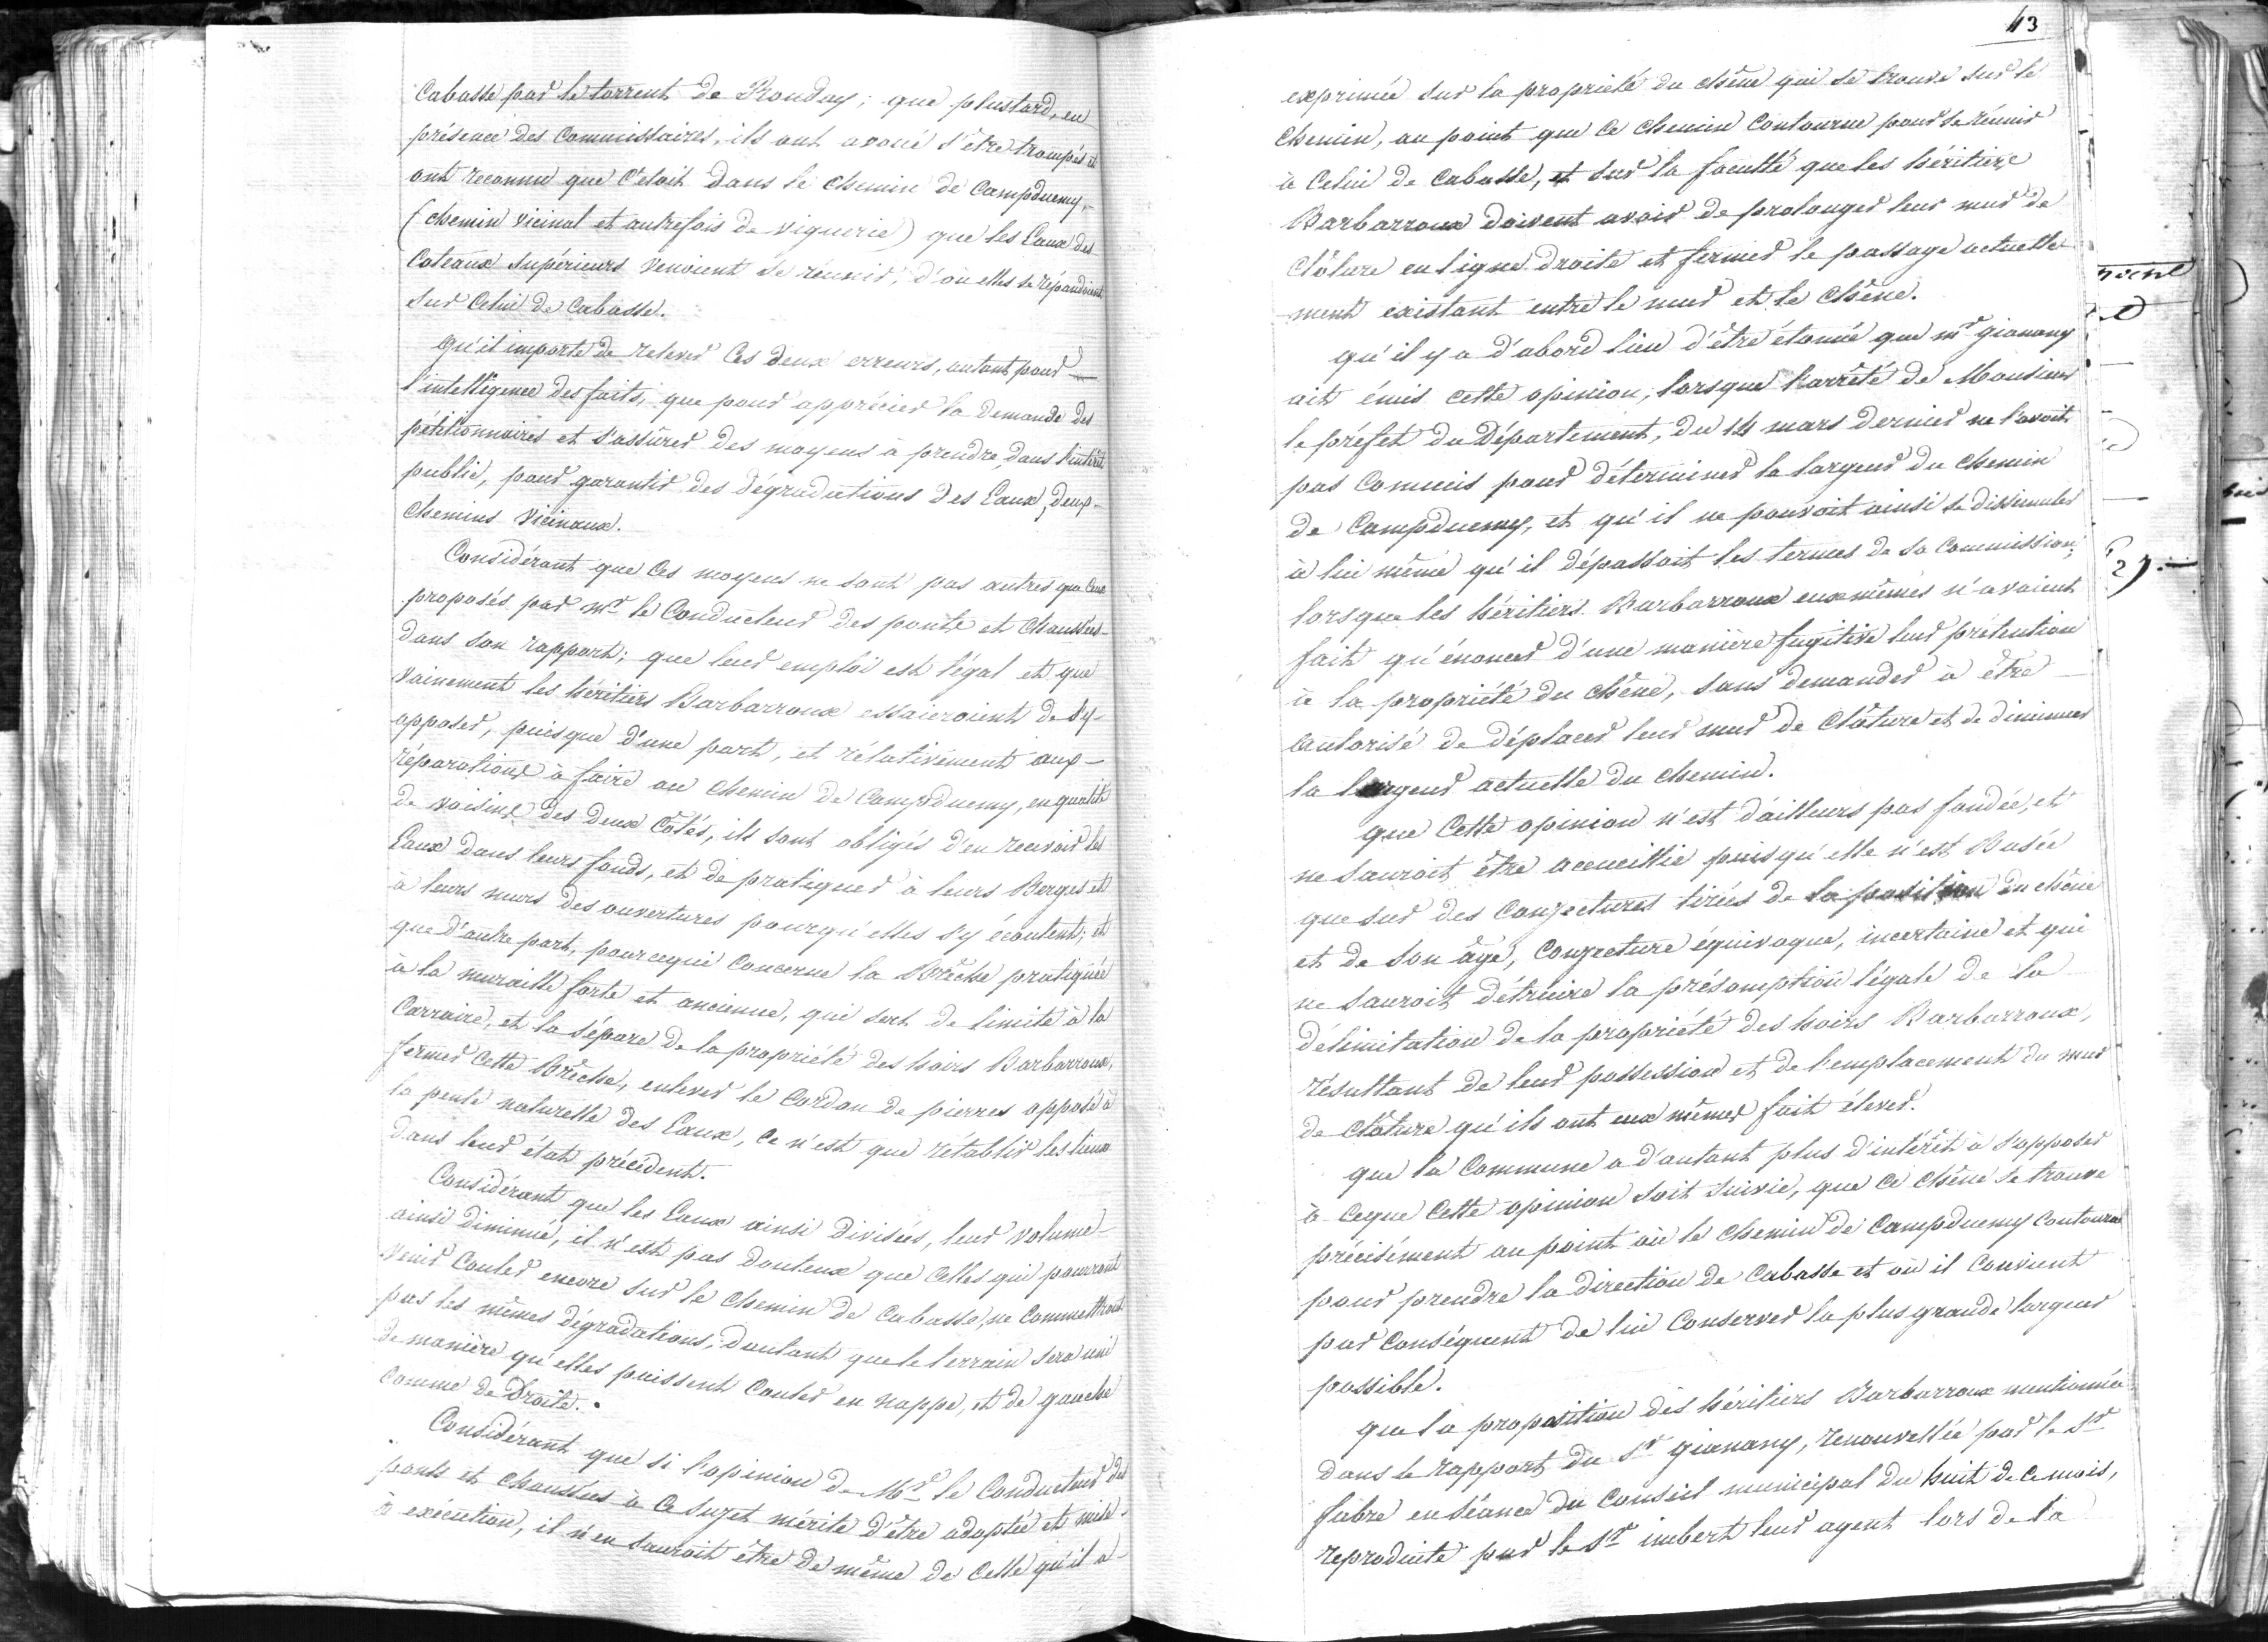 Cabasse par le torrent de Rouday; que plustard, en
présence des Commissaires, ils ont avoué s'être trompés et
ont reconnu que c'etoit dans le chemin de Campduemy,-
(chemin vicinal et autrefois de viguerie) que les Eaux des
Coteaux supérieurs venoient se réunir, d'où elles se répandoient
sur celui de Cabasse.
qu'il importe de relever ces deux erreurs, autant pour
l'intelligence des faits, que pour apprécier la demande des
pétitionnaires et s'assûrer des moyens à prendre, dans l'intérêt
public, pour garantir des dégradations des Eaux, deux
chemins vicinaux.
Considérant que ces moyens ne sont pas autres que ceux
proposés par mr le Conducteur des ponts et chaussées
dans son rapport; que leur emploi est légal et que
vainement les héritiers Barbarroux essaieroient de s'y-
opposer, puisque d'une part, et rélativement aux-
réparations à faire au chemin de Campduemy, en qualité
de voisins des deux Côtés, ils sont obligés d'en recevoir les
Eaux dans leurs fonds, et de pratiquer à leurs Berges et
à leurs murs des ouvertures pourqu'elles s'y écoulent; et
que d'autre part, pour cequi concerne la Brêche pratiquée
à la muraille forte et ancienne, qui sert de limite à la
Carraire, et la sépare de la propriété des hoirs Barbarroux,
fermer cette Brêche, enlever le Cordon de pierres opposé à
la pente naturelle des Eaux, ce n'est que rétablir les lieux
dans leur état précédent.
Considérant que les Eaux ainsi divisées, leur volume-
ainsi diminué, il n'est pas douteux que celles qui pourront
venir couler encore sur le chemin de Cabasse, ne commettront
pas les mêmes dégradations; dautant que le terrain sera uni
de manière qu'elles puissent couler en nappe, et de gauche
comme de Droite.
Considérant que si l'opinion de Mr le Conducteur des
ponts et chaussées à ce sujet mérite d'être adoptée et mise-
à exécution, il n'en sauroit être de même de celle qu'il a-
43
exprimée sur la propriété du chêne qui se trouve sur le
chemin, au point que ce chemin contourne pour se réunir
à celui de Cabasse, et sur la faculté que les héritiers
Barbarroux doivent avoir de prolonger leur mur de
clôture en ligne droite et fermer le passage actuelle-
ment existant entre le mur et le chêne.
qu'il y a d'abord lieu d'être étonné que mr gianany
ait émis cette opinion, lorsque l'arrêté de Monsieur
le préfet du Département, du 14 mars dernier ne l'avoit
pas commis pour déterminer la largeur du chemin
de Campduemy, et qu'il ne pouvoit ainsi se dissimuler
à lui même qu'il dépassoit les termes de sa commission;
lorsque les héritiers Barbarroux eux mêmes n'avaient
fait qu'énoncer d'une manière fugitive leur prétention
à la propriété du chêne, sans demander à être
autorisé de déplacer leur mur de clôture et de diminuer
la largeur actuelle du chemin.
que cette opinion n'est d'ailleurs pas fondée, et
ne sauroit être accueillie puisqu'elle n'est Basée
que sur des conjectures tirées de la position du chêne
et de son âge, conjecture équivoque, incertaine et qui
ne sauroit détruire la présomption légale de la
délimitation de la propriété des hoirs Barbarroux,
résultant de leur possession et de l'emplacement du mur
de clôture qu'ils ont eux mêmes fait élever.
que la Commune a d'autant plus d'intérêt à s'opposer
à ceque cette opinion soit suivie, que ce chêne se trouve
précisément au point où le chemin de Campduemy contourne
pour prendre la direction de Cabasse et où il convient
par conséquent de lui conserver la plus grande largeur
possible.
que la proposition des héritiers Barbarroux mentionnée
dans le rapport du Sr gianany, renouvellée par le Sr
fabre en séance du conseil municipal du huit de ce mois,
reproduite par le Sr imbert leur agent lors de la